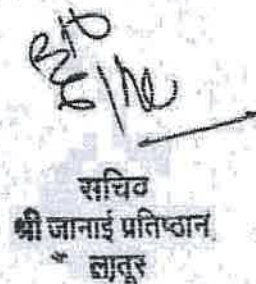 सचिव
श्री जानाई प्रतिष्ठान
लातूर